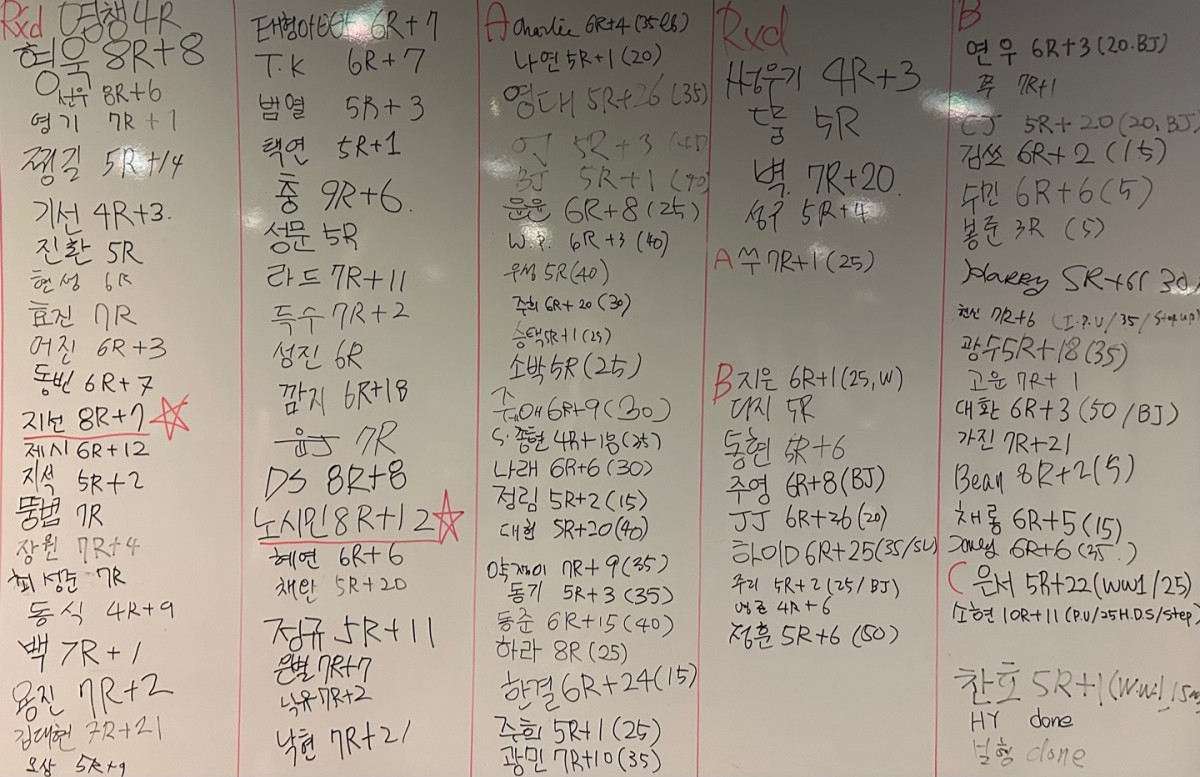 Rxd 영챙 4R
형욱 8R+8
선우 8R+6
영기 7R+1
찡길 5R+14
기선 4R+3.
진환 5R
현성 6R
효진 7R
어진 6R+3
동빈 6R+7
지선 8R+7
제시 6R+12
지석 5R+2
뚱범 7R
장원 7R+4
최성준 7R
동식 4R+9
백 7R+1
용진 7R+2
김대현 7R+21
오상 5R+9
태형아빠 6R+7
T.K 6R+7
범열 5R+3
택연 5R+1
춤 9R+6.
성문 5R
라드 7R+11
득수 7R+2
성진 6R
깜지 6R+18
윤J 7R
DS 8R+8
노시민 8R+12
혜연 6R+6
채란 5R+20
정규 5R+11
은별 7R+7
낙유 7R+2
낙현 7R+21
A Charlie 6R+4 (35lb)
나연 5R+1 (20)
영태 5R+26 (35)
언 5R+3 (40
BJ 5R+1 (40)
윤윤 6R+8 (25)
W.P. 6R+3 (40)
우성 5R (40)
주희 6R+20 (30)
승택 5R+1 (25)
소박 5R (25)
6R+9 (30)
S.종현 4R+18 (25)
나래 6R+6 (30)
정림 5R+2 (15)
대협 5R+20 (40)
약쟁이 7R+9 (35)
동기 5R+3 (35)
동준 6R+15 (40)
하라 8R (25)
한결 6R+24 (15)
주희 5R+1 (25)
광민 7R+10 (35)
Rxd
형우기 4R+3
5R
벽. 7R+20.
성구 5R+4
A 쑤 7R+1 (25)
B 지은 6R+1 (25, W)
다지 5R
동현 5R+6
주영 6R+8 (BJ)
JJ 6R+26 (20)
하이D 6R+25 (35/SU)
주리 5R+2 (25/BJ)
4R+6
정훈 5R+6 (50)
B
연우 6R+3 (20.BJ)
쭈 7R+1
CJ 5R+20 (20, BJ)
김쓰 6R+2 (15)
수민 6R+6 (5)
봉준 3R (5)
Harry 5R+6( 30)
현선 7R+6 (I.P.U/35/Step up)
광수 5R+18 (35)
고운 7R+1
대환 6R+3 (50/BJ)
가진 7R+21
Bean 8R+2 (5)
채롱 6R+5 (15)
6R+6 (35.)
C 은서 5R+22 (WW1/25)
소현 10R+11 (P.U/25H.D.S/Step)
찬호 5R+1 (W.W.1/15
HY done
널형 done